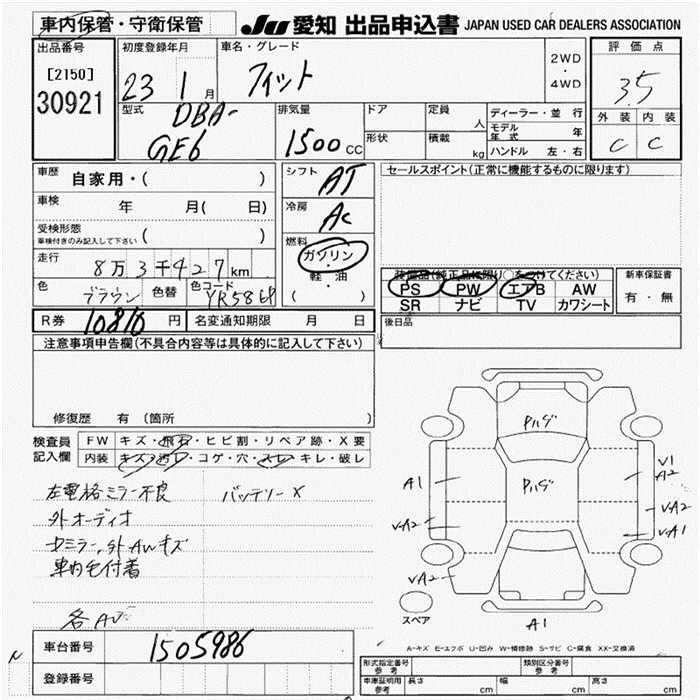 車内保管・守衛保管
JU 愛知 出品申込書 JAPAN USED CAR DEALERS ASSOCIATION
出品番号
[2150]
30921
初度登録年月
23 1 月
車名・グレード
フィット
2WD
・
4WD
評価点
3.5
外装 内装
C C
型式
DBA-
GE6
排気量
1500 CC
ドア
形状
定員 人
積載 kg
ディーラー・並 行
モデル年式 年
ハンドル 左・右
車歴 自家用・( )
車検 年 月( 日)
受検形態
車検付きのみ記入して下さい ( )
走行 8万3千427km
色 ブラウン 色替 色コード YR586P
シフト AT
冷房 AC
燃料
ガソリン
・
軽 油
( )
セールスポイント(正常に機能するものに限ります)
装備品(純正品に限り○をつけてください)
PS PW エアB AW
SR ナビ TV カワシート
新車保証書
有・無
R券 10810 円 名変通知期限 月 日
後日品
注意事項申告欄(不具合内容等は具体的に記入して下さい)
修復歴 有 (箇所 )
検査員記入欄
FW キズ・飛石・ヒビ割・リペア跡・X要
内装 キズ・汚レ・コゲ・穴・スレ・キレ・破レ
左電格ミラー不良 バッテリーX
外オーディオ
ミラー,外AWキズ
車内毛付着
各AU
Pハゲ
Pハゲ
A1
A2
A2
V1
A2
A2
A1
A1
スペア
車台番号 1505986
登録番号
A-キズ E-エクボ U-凹み W-補修跡 S-サビ C-腐食 XX-交換済
形式指定番号 参考
類別区分番号 参考
車庫証明用 参考 長さ cm 幅 cm 高さ cm